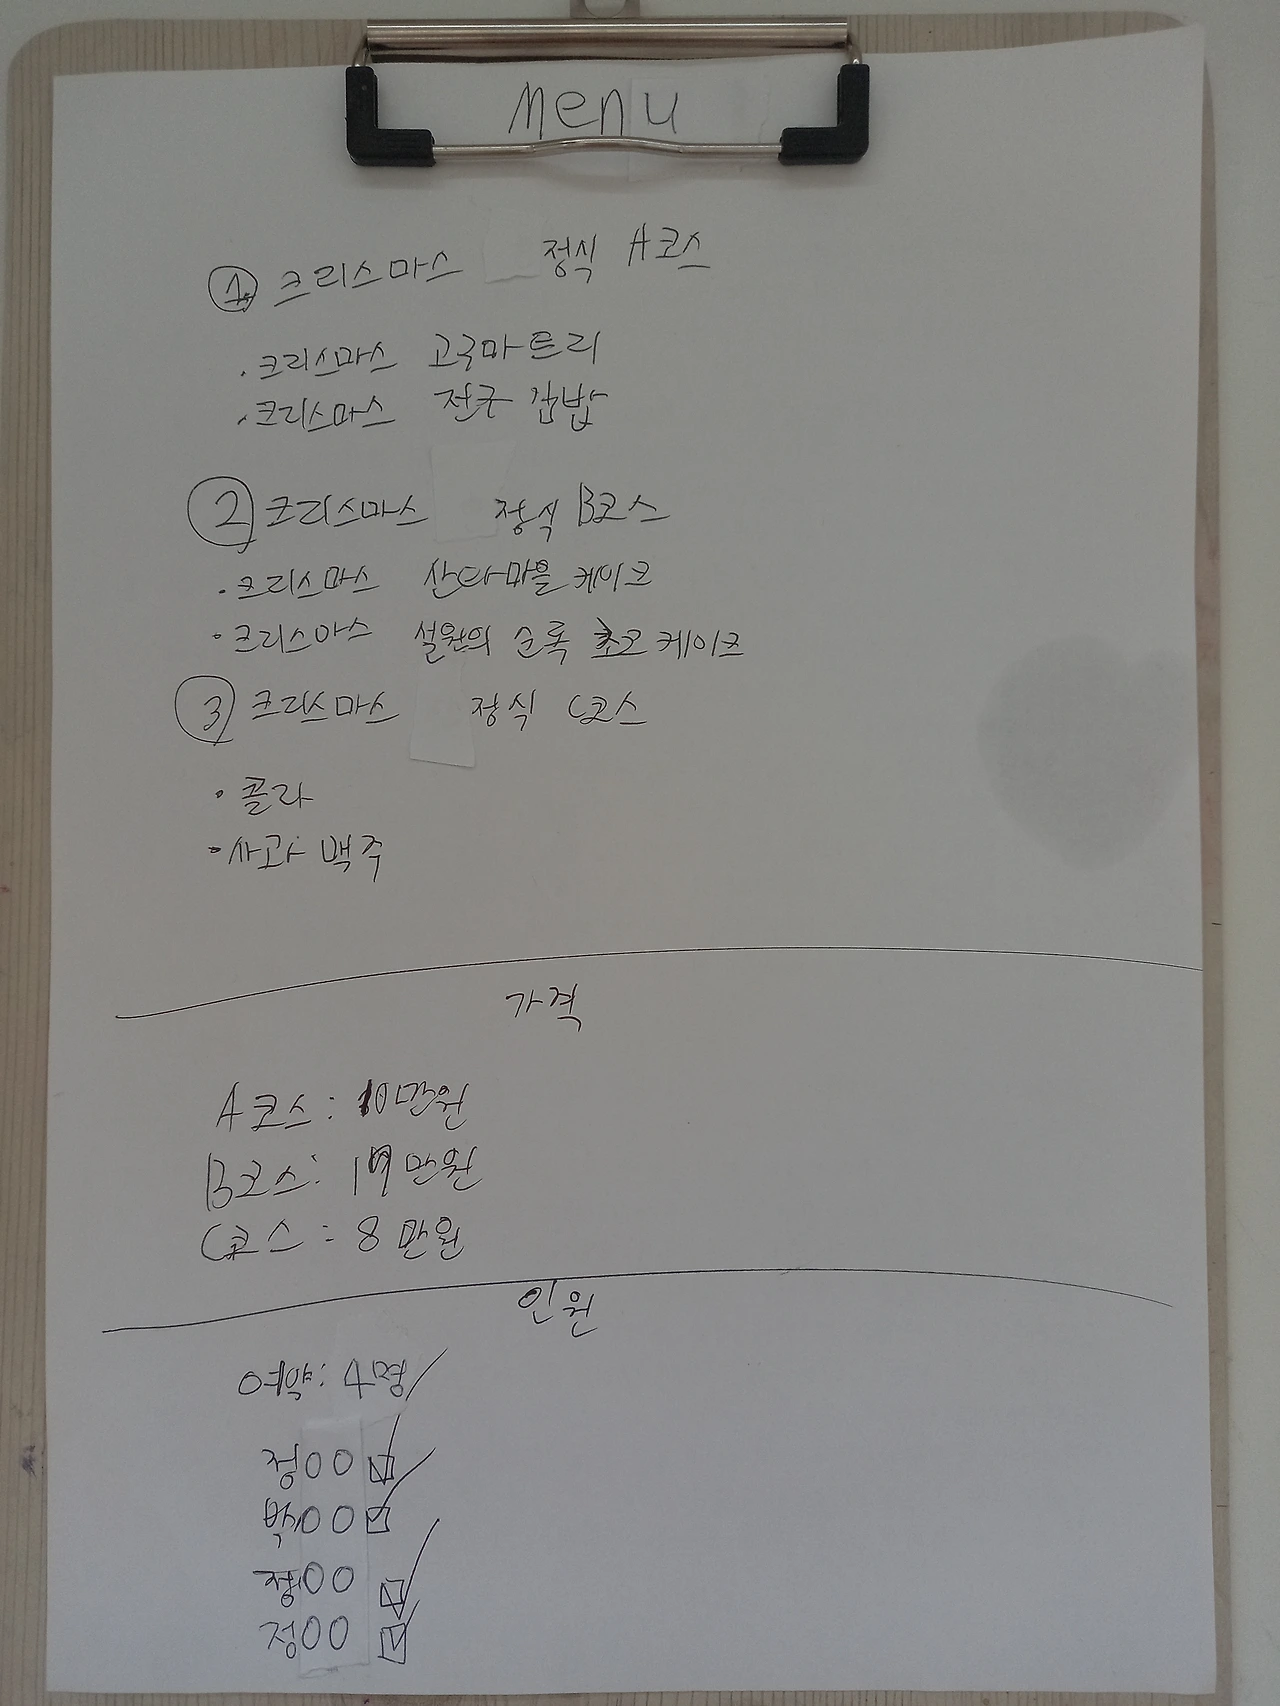 Menu
① 크리스마스 정식 A코스
· 크리스마스 고구마트리
· 크리스마스 전구 김밥
② 크리스마스 정식 B코스
· 크리스마스 산타마을 케이크
· 크리스마스 설원의 순록 초코 케이크
③ 크리스마스 정식 C코스
· 콜라
· 사과 맥주
가격
A코스: 10만원
B코스: 만원
C코스: 8만원
인원
예약: 4명
정OO
박OO
정OO
정OO